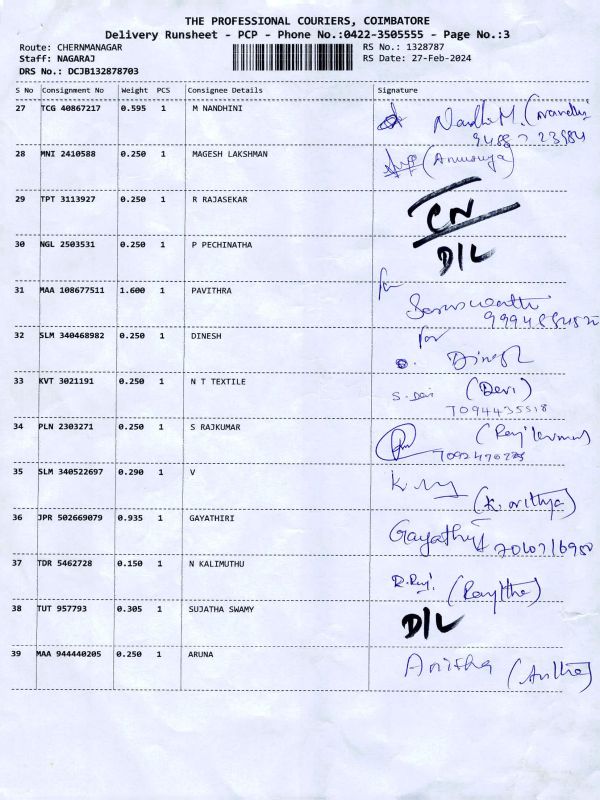 THE PROFESSIONAL COURIERS, COIMBATORE
Delivery Runsheet - PCP - Phone No.:0422-3505555 - Page No.:3
Route: CHERNMANAGAR
RS No.: 1328787
Staff: NAGARAJ
RS Date: 27-Feb-2024
DRS No.: DCJB132878703
S No Consignment No Weight PCS Consignee Details Signature
27 TCG 40867217 0.595 1 M NANDHINI
Nandhi M.
28 MNI 2410588 0.250 1 MAGESH LAKSHMAN (Anusuya)
29 TPT 3113927 0.250 1 R RAJASEKAR CN
30 NGL 2503531 0.250 1 P PECHINATHA D/L
31 MAA 108677511 1.600 1 PAVITHRA for
32 SLM 340468982 0.250 1 DINESH for
Dinesh
33 KVT 3021191 0.250 1 N T TEXTILE S. Devi (Devi)
7094435518
34 PLN 2303271 0.250 1 S RAJKUMAR
35 SLM 340522697 0.290 1 V
36 JPR 502669079 0.935 1 GAYATHIRI Gayathri
37 TDR 5462728 0.150 1 N KALIMUTHU R. Raj.
38 TUT 957793 0.305 1 SUJATHA SWAMY D/L
39 MAA 944440205 0.250 1 ARUNA Anitha (Anitha)